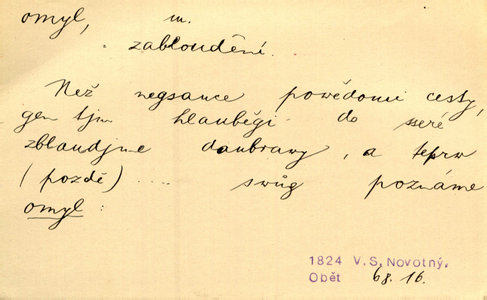 omyl, m.
zabloudění.
Než negsauce powědomi cesty,
gen tjm hlauběgi do sseré
zblaudjme daubrawy, a teprw
(pozdě) ... swůg poznáme
omyl:
1824 V.S. Novotný.
Obět 68. 16.